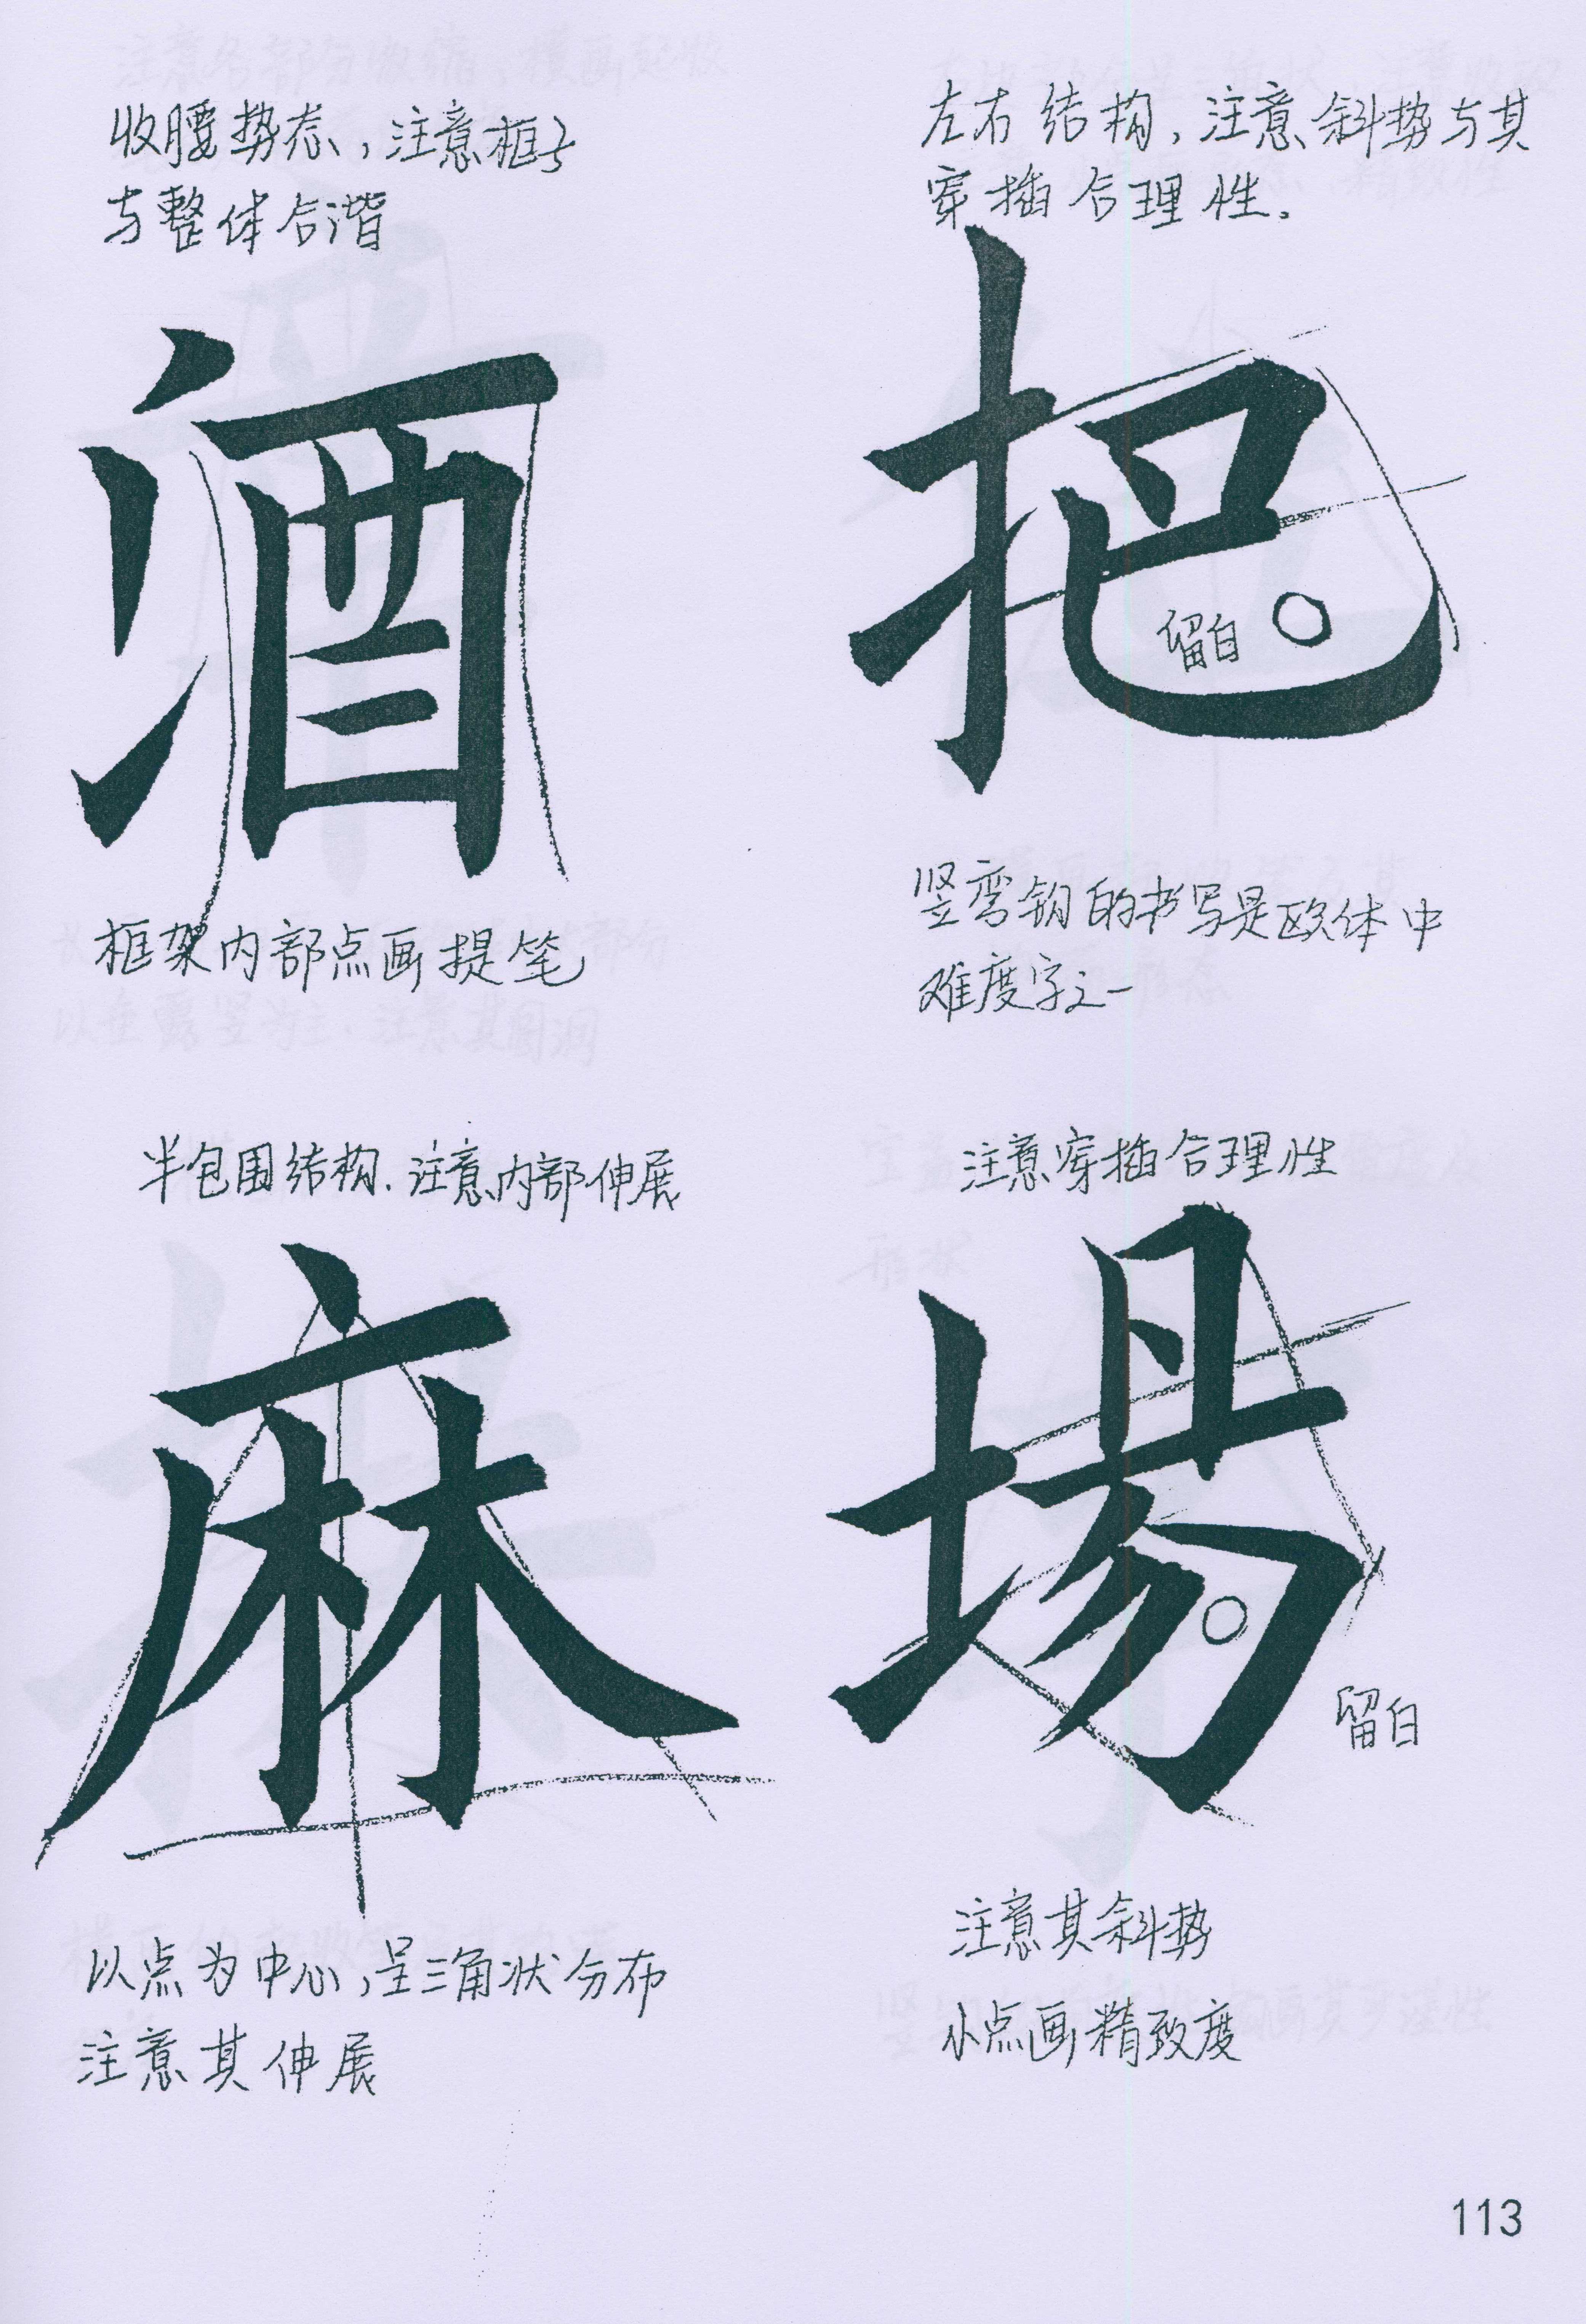 收腰势态，注意框子
与整体合谐
酒
框架内部点画提笔
左右结构，注意斜势与其
穿插合理性。
把
留白
竖弯钩的书写是欧体中
难度字之一
半包围结构．注意内部伸展
麻
以点为中心，呈三角状分布
注意其伸展
注意穿插合理性
場
留白
注意其斜势
小点画精致度
113